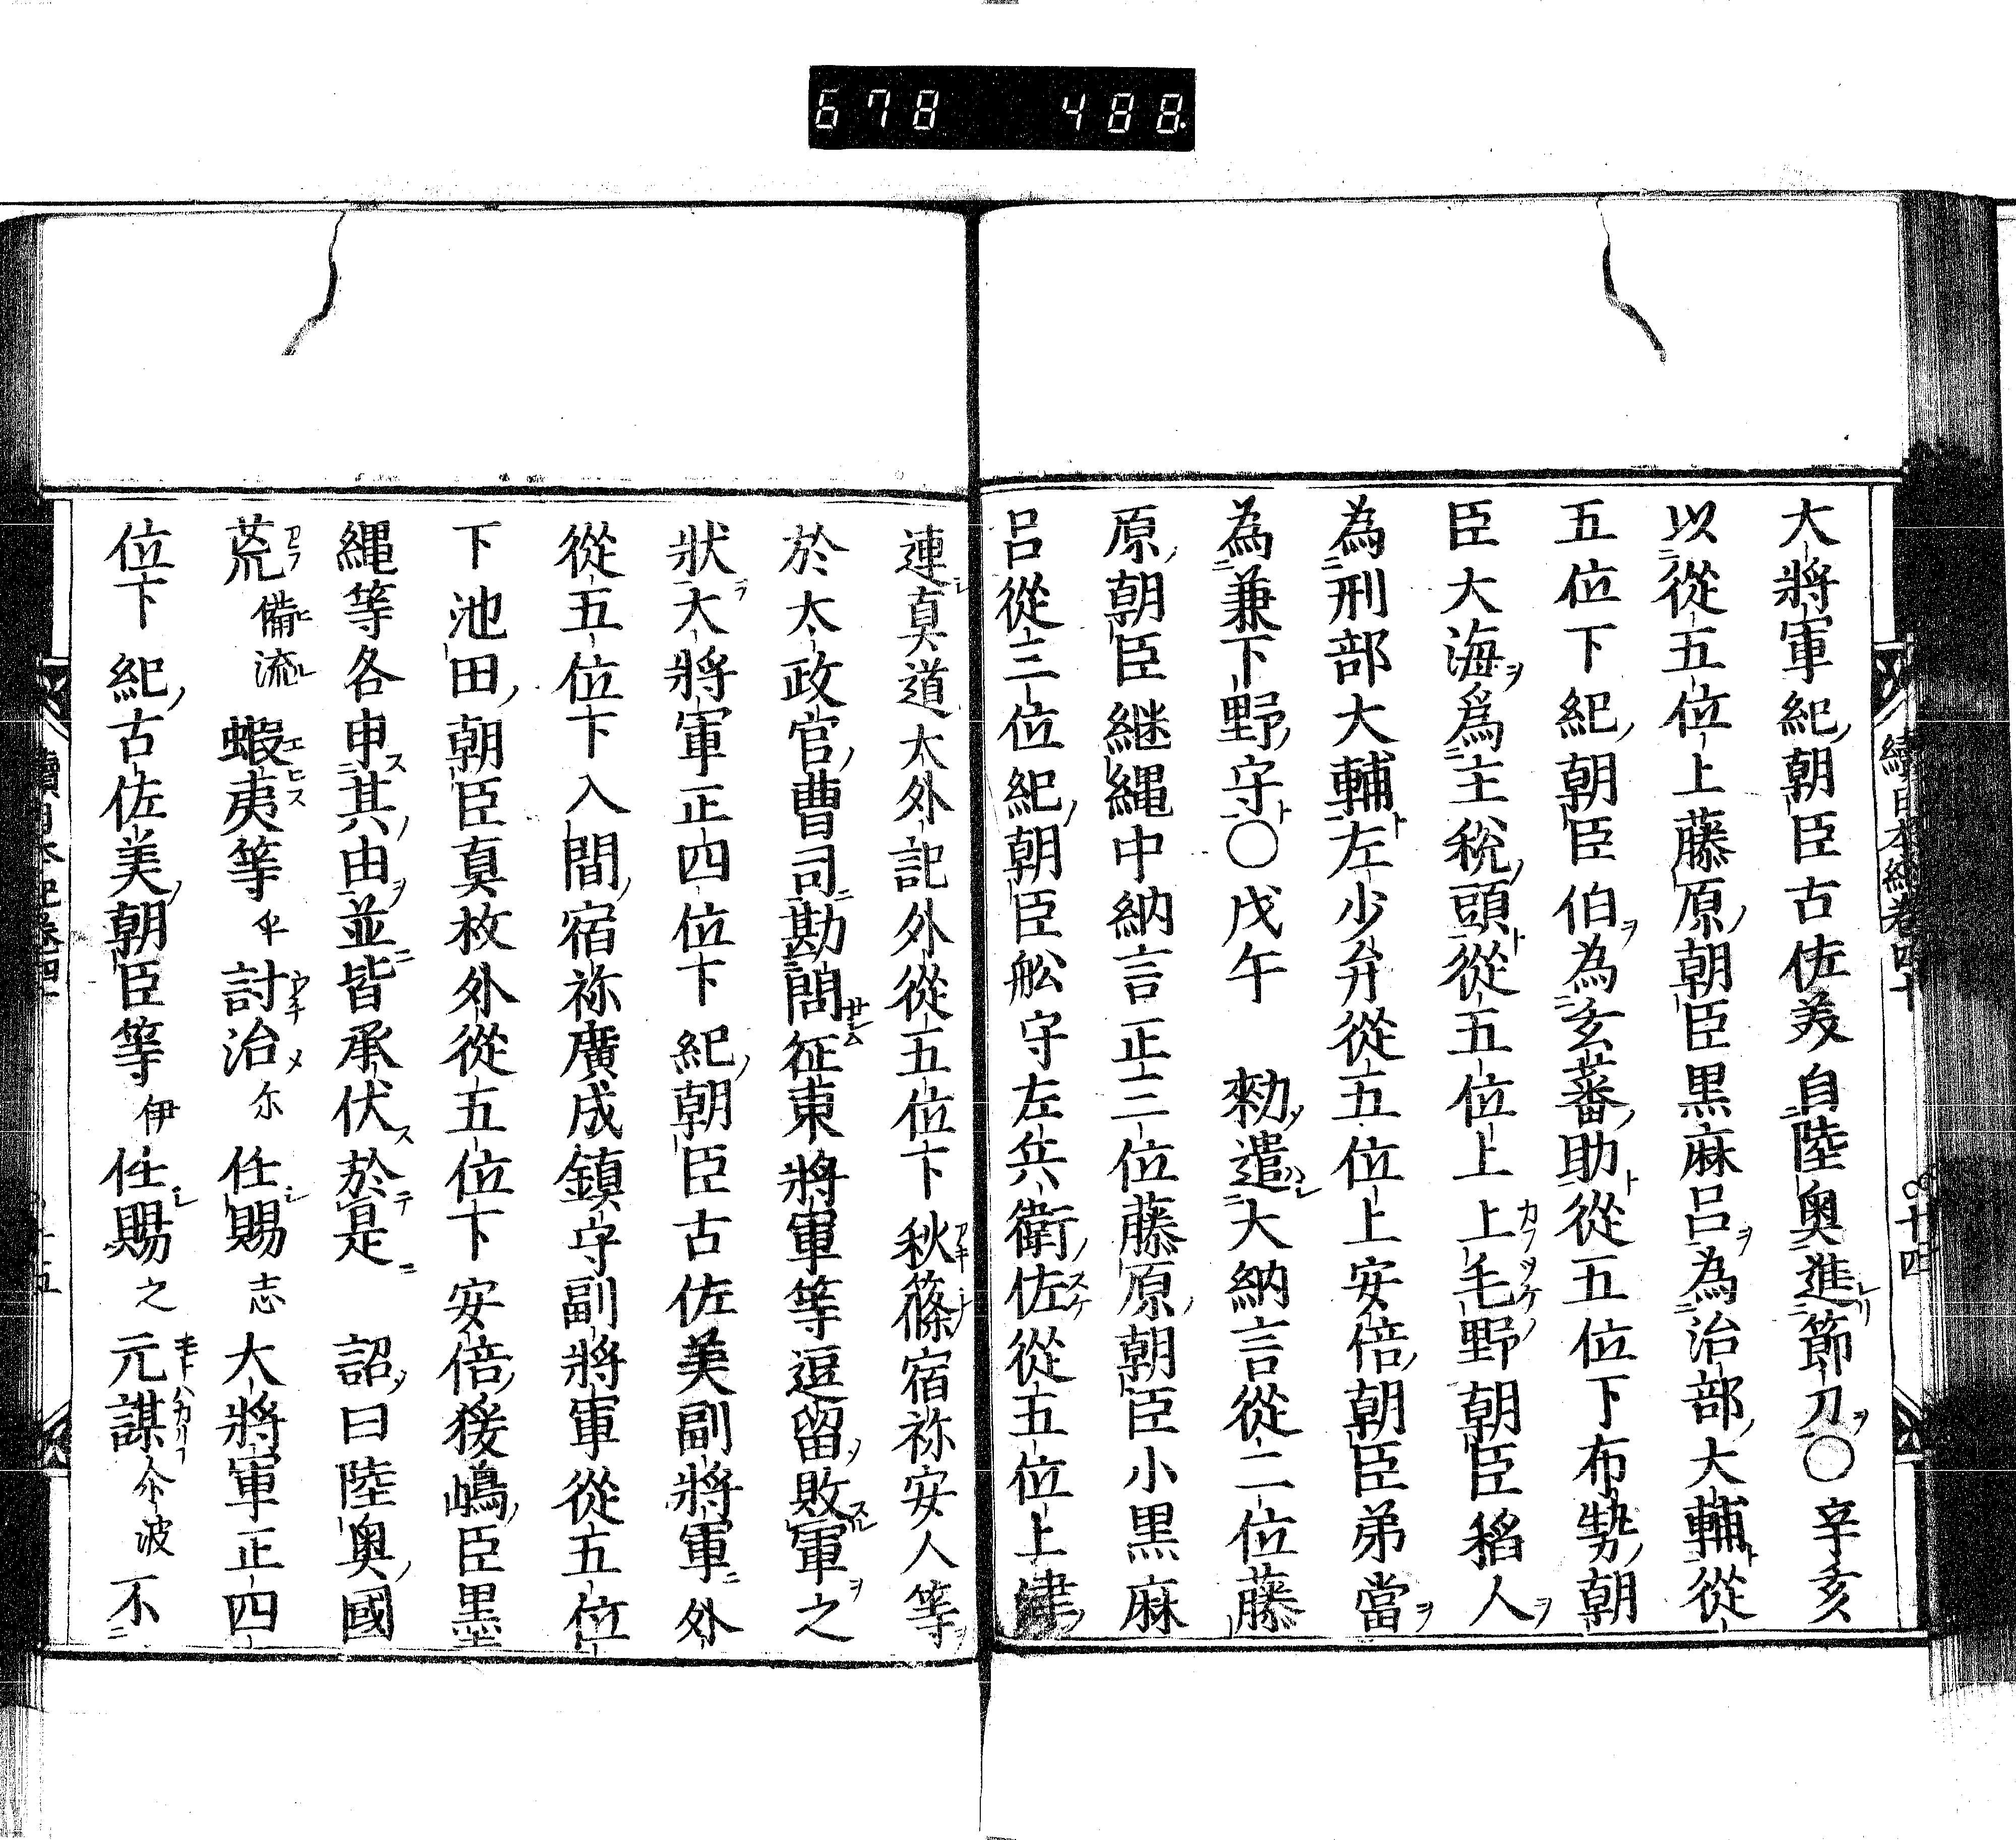 678 488.
續日本紀卷四十 十四
大將軍紀朝臣古佐美自陸奧進節刀○辛亥
以從五位上藤原朝臣黒麻呂為治部大輔從
五位下紀朝臣伯為玄蕃助從五位下布勢朝
臣大海爲主稅頭從五位上上毛野朝臣稻人
為刑部大輔左少弁從五位上安倍朝臣弟當
為兼下野守○戊午 勑遣大納言從二位藤
原朝臣継縄中納言正三位藤原朝臣小黒麻
呂從三位紀朝臣舩守左兵衛佐從五位上津
連真道太外記外從五位下秋篠宿祢安人等
於太政官曹司勘問征東將軍等逗留敗軍之
狀大將軍正四位下紀朝臣古佐美副將軍外
從五位下入間宿祢廣成鎮守副將軍從五位
下池田朝臣真枚外從五位下安倍猨嶋臣墨
縄等各申其由並皆承伏於是 詔曰陸奧國
荒備流蝦夷等乎討治尓任賜志大將軍正四
位下紀古佐美朝臣等伊任賜之元謀尒波不